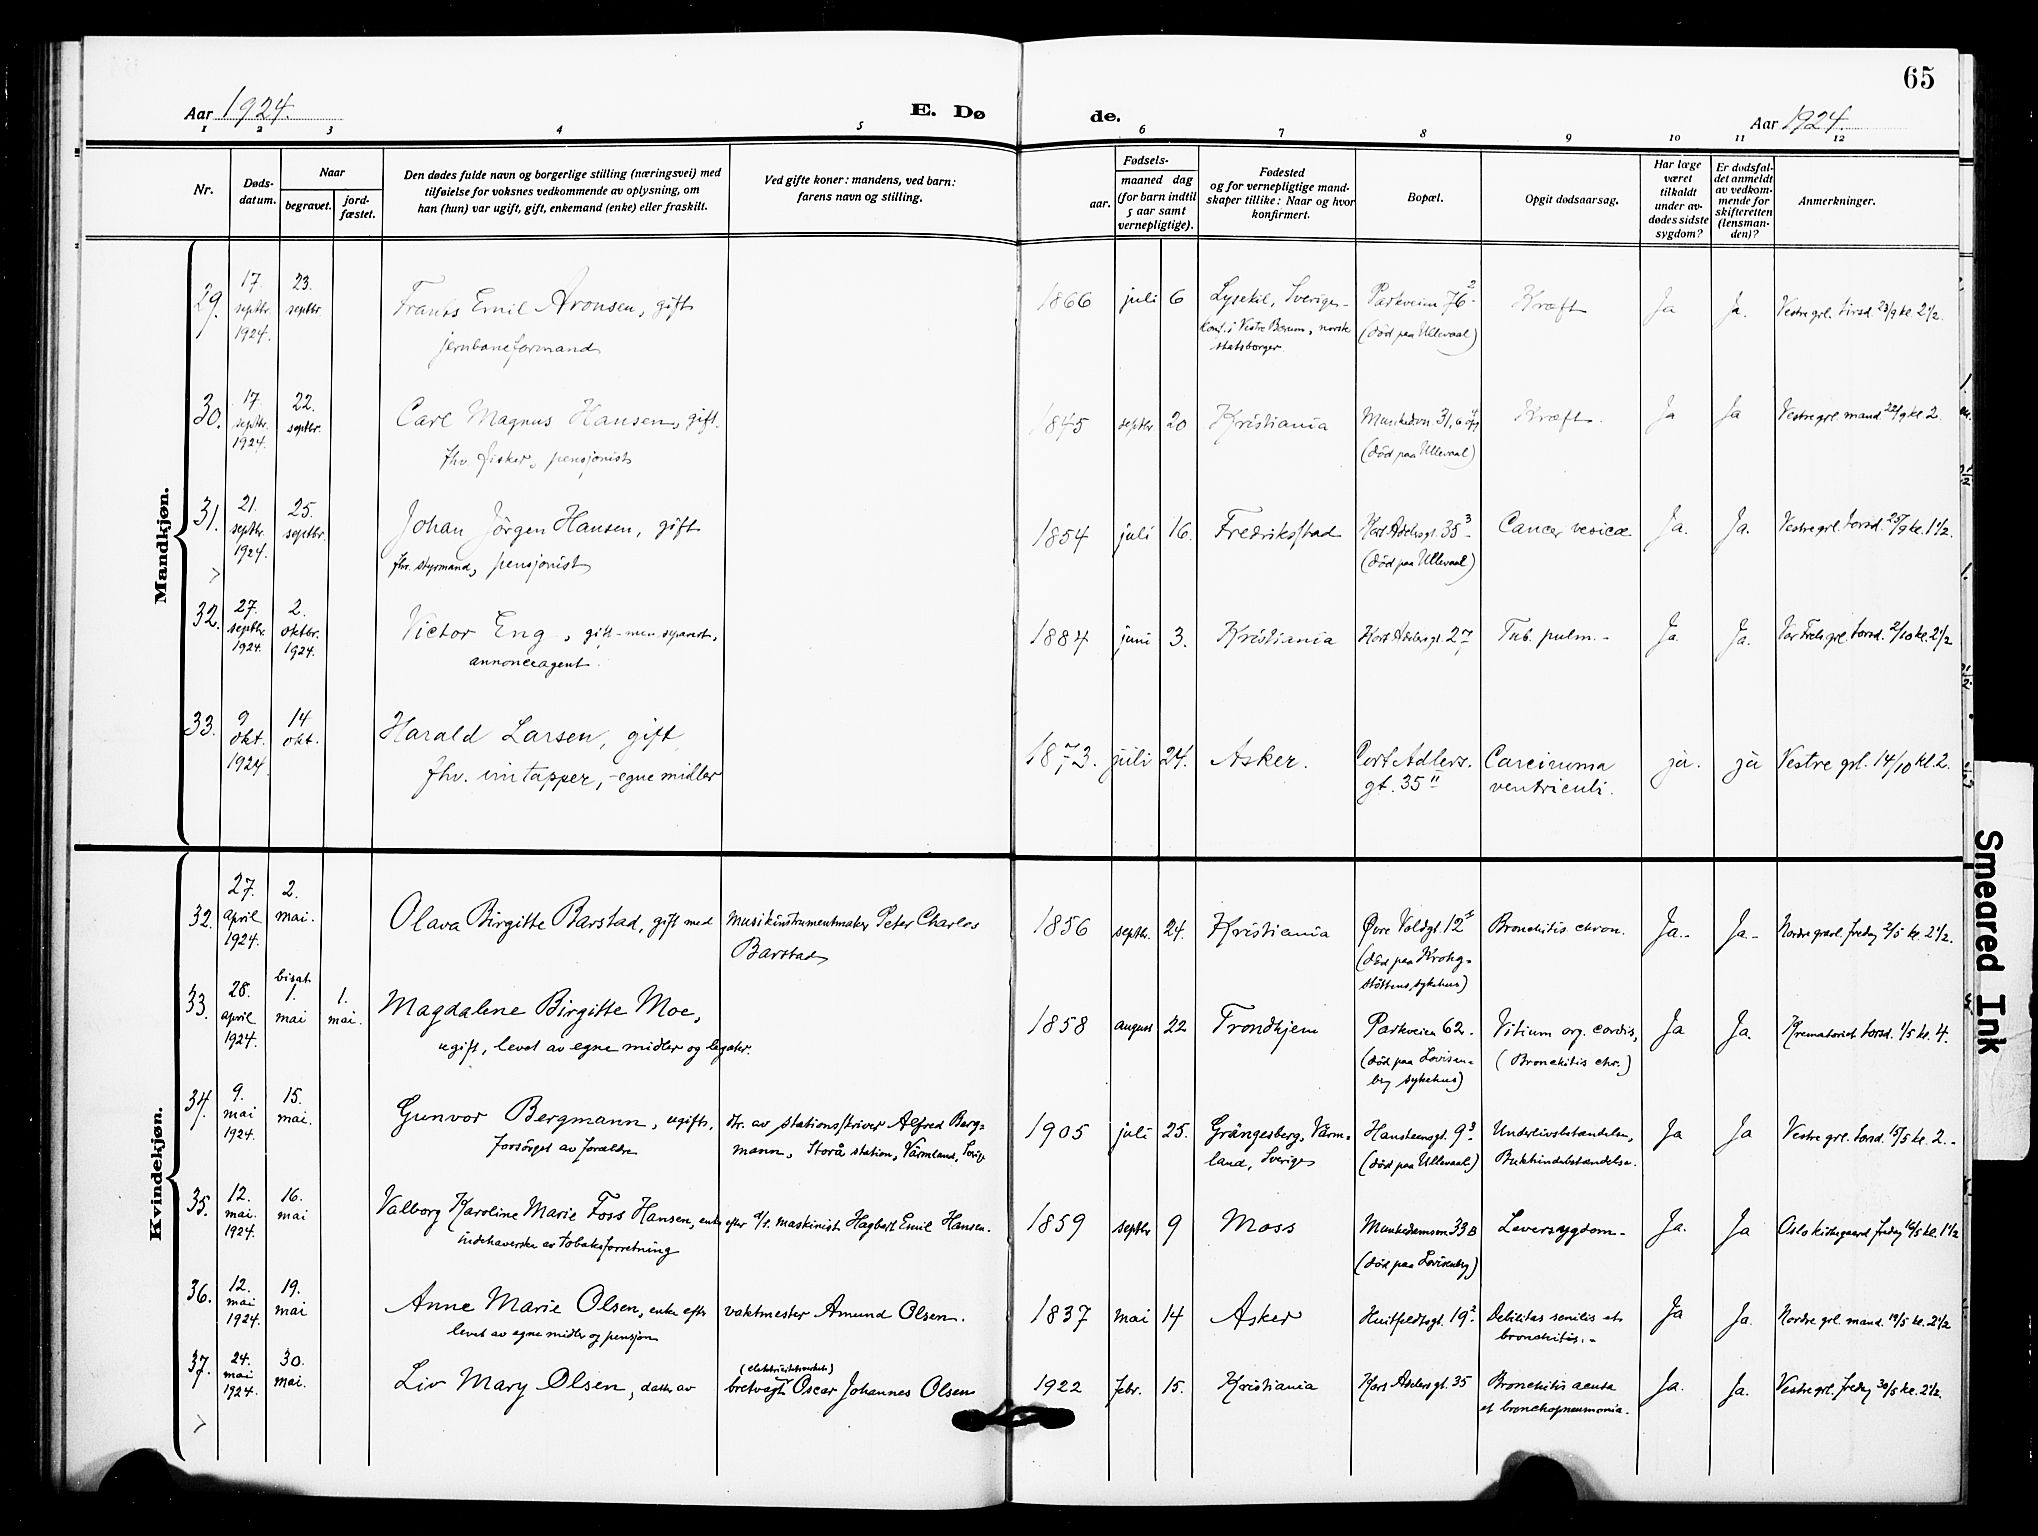 65
Aar 1924.
E. Dø
de.
Aar 1924.
1 2 3 4 5 6 7 8 9 10 11 12
Nr.
Døds-
datum.
Naar
begravet.
jord-
fæstet.
Den dødes fulde navn og borgerlige stilling (næringsvei) med
tilføielse for voksnes vedkommende av oplysning, om
han (hun) var ugift, gift, enkemand (enke) eller fraskilt.
Ved gifte koner: mandens, ved barn:
farens navn og stilling.
Fødsels-
aar.
maaned dag
(for barn indtil
5 aar samt
vernepligtige).
Fødested
og for vernepligtige mand-
skaper tillike: Naar og hvor
konfirmert.
Bopæl.
Opgit dødsaarsag.
Har læge
været
tilkaldt
under av-
dødes sidste
sygdom?
Er dødsfal-
det anmeldt
av vedkom-
mende for
skifteretten
(lensman-
den)?
Anmerkninger.
Mandkjøn.
29.
17.
septbr.
1924.
23.
septbr
Frants Emil Aronsen, gift
jernbaneformand
1866 juli 6
Lysekil, Sverige-
konf. i Vestre Bærum, norsk
statsborger
Parkveien 76²-
(død paa Ullevaal)
Kræft
Ja
Ja.
Vestre grl. tirsd. 23/9 kl. 2 1/2.
30.
17.
septbr.
1924.
22.
septbr.
Carl Magnus Hansen, gift.
fhv. fisker, pensjonist
1845 septbr. 20
Kristiania
(død paa Ullevaal)
Kræft.
Ja
Ja
Vestre grl. mand 22/9 kl. 2.
31.
21.
septbr.
1924.
25.
septbr.
Johan Jörgen Hansen, gift
fhv. styrmand, pensjonist
1854 juli 16.
Fredriksstad
Kort Adelersgt. 35³-
(død paa Ullevaal)
Cancer vesicæ
Ja.
Ja.
Vestre grl. torsd. 25/9 kl. 1 1/2.
32.
27.
septbr.
1924.
2.
oktbr.
1924.
Victor Eng-, gift-men separert,
annonceagent.
1884 juni 3.
Kristiania
Kort Adelersgt. 27
Tub. pulm.-
Ja.
Ja.
Vor Frels grl. torsd. 2/10 kl. 2 1/2
33.
9
okt.
1924.
14
okt.
Harald Larsen, gift,
fhv. vintapper, -egne midler
1873. juli 24.
Asker.
Cort Adlers.
gt. 35 II
Carcinoma
ventriculi.
ja.
ja
Vestre grl. 14/10 kl. 2.
Kvindekjøn.
32.
27.
april
1924.
2.
mai.
Olava Birgitte Barstad, gift med
Musikinstrumentmaker Peter Charles
Barstad
1856 septbr. 24.
Kristiania
Øvre Voldgt. 12
(død paa Krohg-
støttens sykehus)
Bronchitis chron.
Ja.-
Ja.-
Nordre gravl. fredag 2/5 kl. 2 1/2.
33.
28.
april
1924.
bisat
1.
mai
1.
mai.
Magdalene Birgitte Moe,
ugift, levet av egne midler og legater.
1858 august 22
Trondhjem
Parkveien 62.
(død paa Lovisen-
berg sykehus)
Vitium org. cordis,
(Bronchitis chr.)
Ja
Ja.
Krematoriet torsd. 1/5 kl. 4.
34.
9.
mai
1924.
15.
mai.
Gunvor Bergmann, ugift,
forsörget av forældre
dtr. av stationsskriver Alfred Berg-
mann, Storå station, Värmland, Sverige
1905 juli 25.
Grängesberg, Värm-
land, Sverige
Hansteensgt. 9³-
(død paa Ullevaal)
Underlivsbetændelse,
Bukhindebetændelse.
Ja
Ja
Vestre grl. torsd. 15/5 kl. 2.-
35.
12.
mai.
1924.
16.
mai
Valborg Karoline Marie Foss Hansen, enke
indehaverske av tobaksforretning
efter maskinist Hagbart Emil Hansen.
1859 septbr 9
Moss
Munkedamsvn 33B
(død paa Lovisenberg)
Leversygdom-
Ja.
Ja
Oslo kirkegaard fredag 16/5 kl. 1 1/2
36.
12.
mai
1924.
19.
mai
Anne Marie Olsen, enke efter
levet av egne midler og pensjon
vaktmester Amund Olsen.
1837 mai 14
Asker
Huitfeldtsgt. 19²
Debilitas senilis et
bronchitis.-
Ja
Ja.
Nordre grl. mand. 19/5 kl. 2 1/2
37.
24.
mai
1924.
30.
mai.
Liv Mary Olsen, datter av
(elektricitetsverkets)
bretvagt Oscar Johannes Olsen
1922 febr. 15.
Kristiania
Kort Adelersgt. 35
Bronchitis acuta
et bronchopneumonia.
Ja.
Ja.
Vestre grl. fredag 30/5 kl. 2 1/2.
Smeared Ink